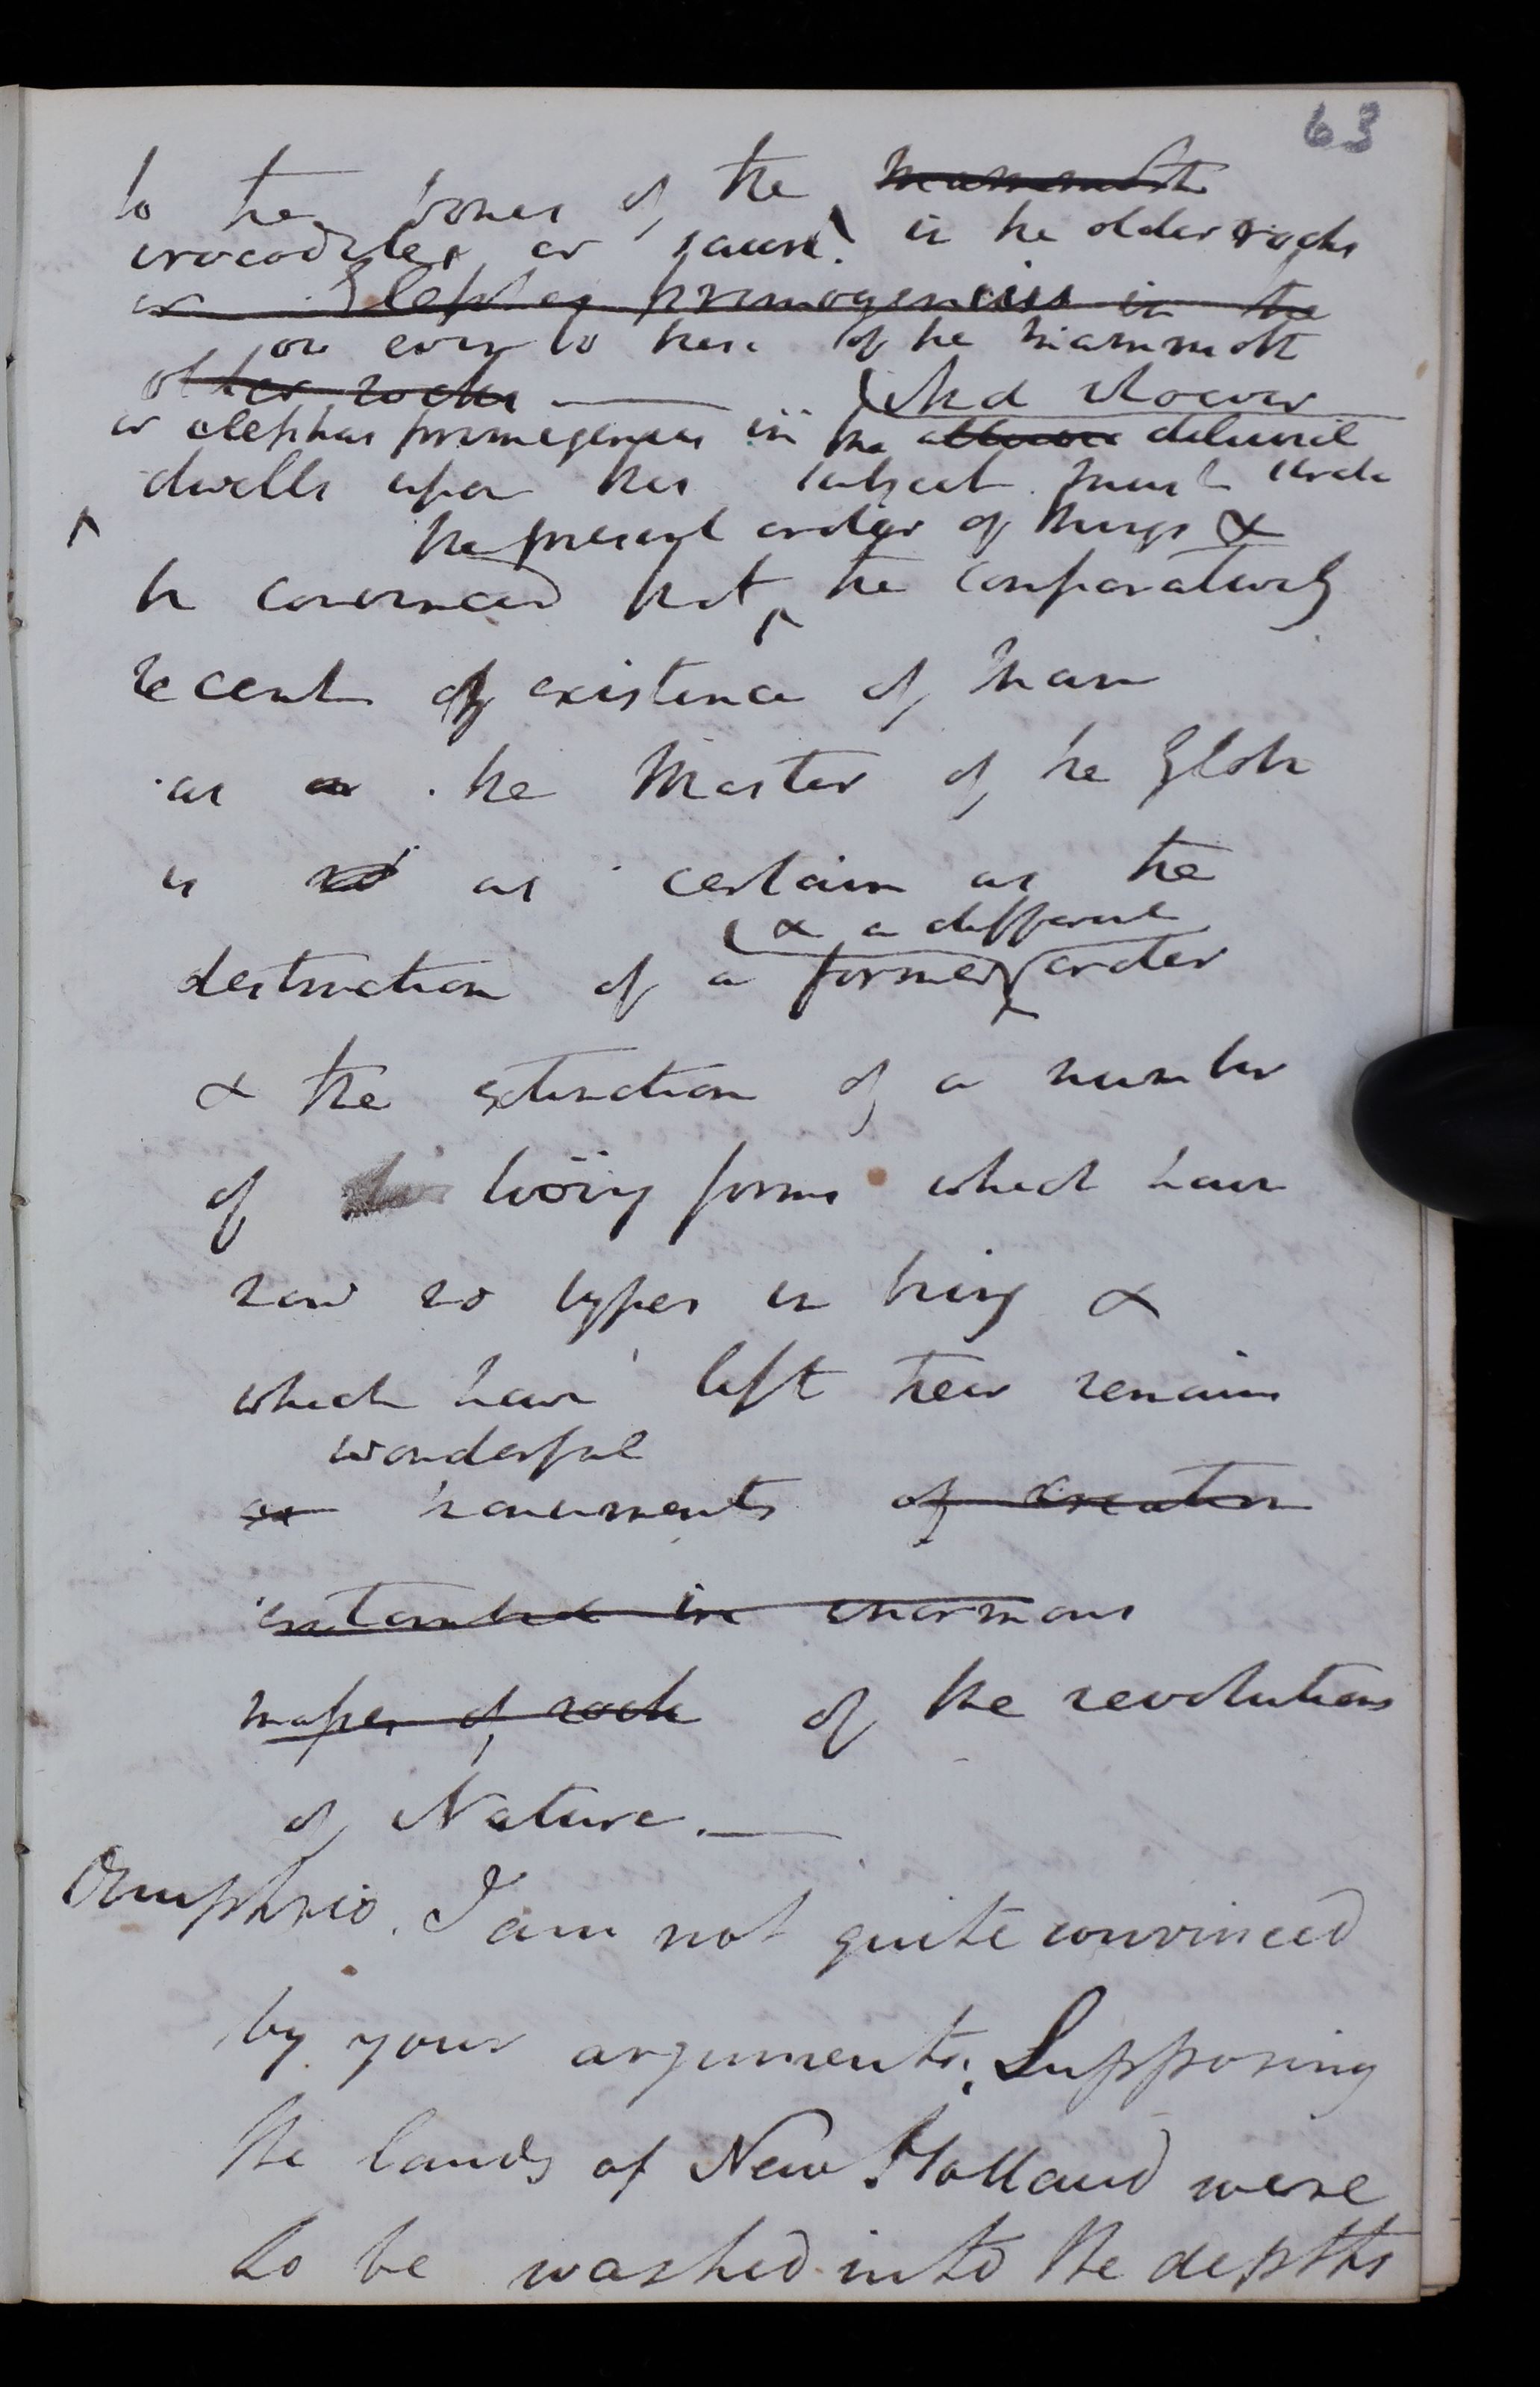 63
to the bones of the mammoth
crocodiles or sauri in the older rocks
or Elephas primogenius in the
or even to those of the mammoth
older rocks. — And whoever
or elephas primogenius in the diluvial
dwells upon this subject must
the present order of things &
be convinced that the comparatively
recent existence of man
as the Master of the Globe
is as certain as the
& a different
destruction of a former order
& the extinction of a number
of living forms which have
now no types in being &
which have left their remains
wonderful
as monuments of creation
entombed in enormous
masses of rock of the revolutions
of Nature. —
Onuphrio. I am not quite convinced
by your arguments. Supposing
the lands of New Holland were
to be washed into the depths